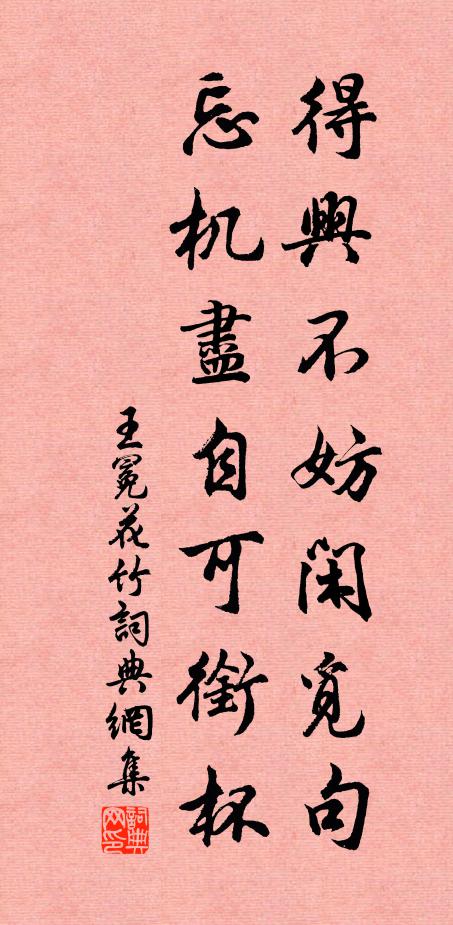 得興不妨閑覓句
忘机盡自可銜杯
王冕花竹詞典網集
詞典
网印